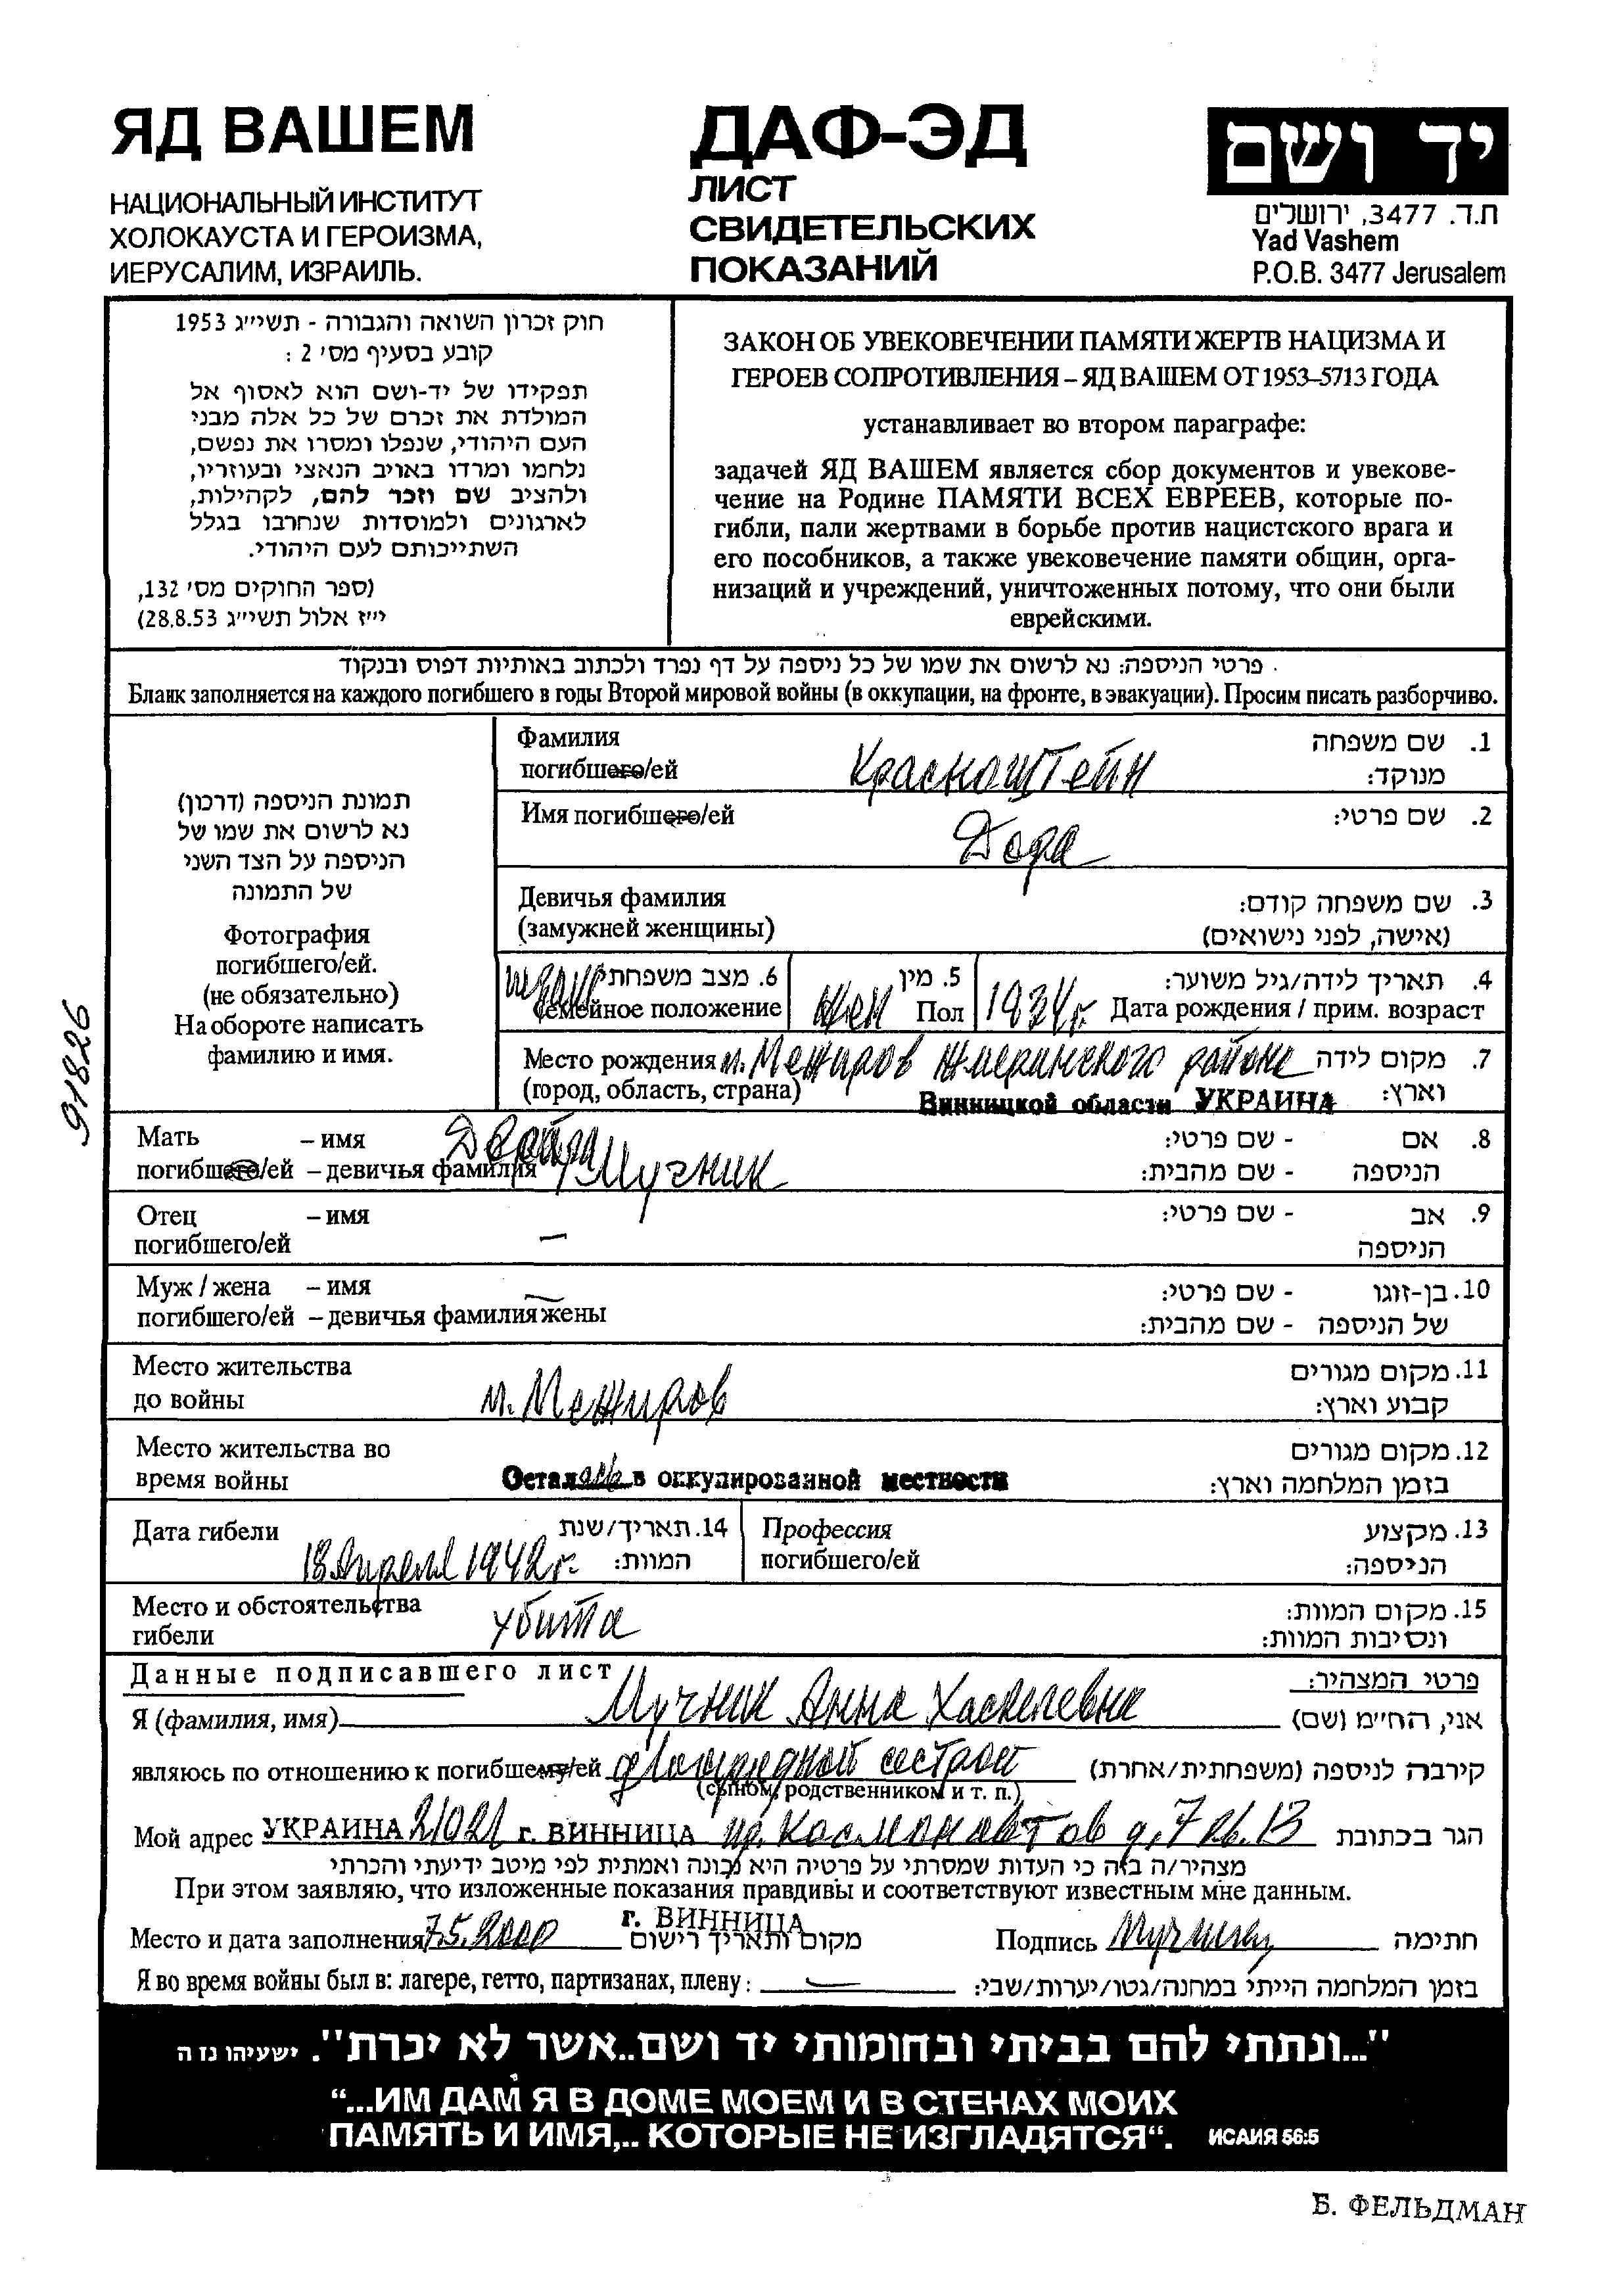 ЯД ВАШЕМ
НАЦИОНАЛЬНЫЙ ИНСТИТУТ
ХОЛОКАУСТА И ГЕРОИЗМА,
ИЕРУСАЛИМ, ИЗРАИЛЬ.
ДАФ-ЭД
ЛИСТ
СВИДЕТЕЛЬСКИХ
ПОКАЗАНИЙ
יד ושם
ת.ד. 3477, ירושלים
Yad Vashem
P.O.B. 3477 Jerusalem
חוק זכרון השואה והגבורה - תשי״ג 1953
קובע בסעיף מס׳ 2 :
תפקידו של יד-ושם הוא לאסוף אל
המולדת את זכרם של כל אלה מבני
העם היהודי, שנפלו ומסרו את נפשם,
נלחמו ומרדו באויב הנאצי ובעוזריו,
ולהציב שם וזכר להם, לקהילות,
לארגונים ולמוסדות שנחרבו בגלל
השתייכותם לעם היהודי.
(ספר החוקים מס׳ 132,
י״ז אלול תשי״ג 28.8.53)
ЗАКОН ОБ УВЕКОВЕЧЕНИИ ПАМЯТИ ЖЕРТВ НАЦИЗМА И
ГЕРОЕВ СОПРОТИВЛЕНИЯ – ЯД ВАШЕМ ОТ 1953–5713 ГОДА
устанавливает во втором параграфе:
задачей ЯД ВАШЕМ является сбор документов и увекове-
чение на Родине ПАМЯТИ ВСЕХ ЕВРЕЕВ, которые по-
гибли, пали жертвами в борьбе против нацистского врага и
его пособников, а также увековечение памяти общин, орга-
низаций и учреждений, уничтоженных потому, что они были
еврейскими.
פרטי הניספה: נא לרשום את שמו של כל ניספה על דף נפרד ולכתוב באותיות דפוס ובנקוד
Бланк заполняется на каждого погибшего в годы Второй мировой войны (в оккупации, на фронте, в эвакуации). Просим писать разборчиво.
תמונת הניספה (דרכון)
נא לרשום את שמו של
הניספה על הצד השני
של התמונה
Фотография
погибшего/ей.
(не обязательно)
На обороте написать
фамилию и имя.
91826
Фамилия
погибшего/ей Красноштейн
1. שם משפחה
מנוקד:
Имя погибшего/ей Дора 2. שם פרטי:
Девичья фамилия
(замужней женщины)
3. שם משפחה קודם:
(אישה, לפני נישואים)
6. מצב משפחתי
Семейное положение
5. מין
жен Пол
4. תאריך לידה/גיל משוער:
1934г. Дата рождения / прим. возраст
Место рождения м. Межиров Жмеринского района 7. מקום לידה
(город, область, страна) Винницкой области УКРАИНА וארץ:
Мать – имя 8. אם - שם פרטי:
погибшего/ей – девичья фамилия Мучник הניספה - שם מהבית:
Отец – имя 9. אב - שם פרטי:
погибшего/ей — הניספה
Муж / жена – имя — 10. בן-זוגו - שם פרטי:
погибшего/ей – девичья фамилия жены של הניספה - שם מהבית:
Место жительства 11. מקום מגורים
до войны м. Межиров קבוע וארץ:
Место жительства во 12. מקום מגורים
время войны Осталась в оккупированной местности בזמן המלחמה וארץ:
Дата гибели 14. תאריך/שנת
18 Апреля 1942 г. המוות:
Профессия 13. מקצוע
погибшего/ей הניספה:
Место и обстоятельства 15. מקום המוות:
гибели убита ונסיבות המוות:
Данные подписавшего лист פרטי המצהיר:
Я (фамилия, имя) Мучник Анна Хаскелевна אני, הח״מ (שם)
являюсь по отношению к погибшему/ей двоюродной сестрой קירבה לניספה (משפחתית/אחרת)
(сыном, родственником и т. п.)
Мой адрес УКРАИНА 21021 г. ВИННИЦА пр. Космонавтов д. 7 кв. 13 הגר בכתובת
מצהיר/ה בזה כי העדות שמסרתי על פרטיה היא נכונה ואמתית לפי מיטב ידיעתי והכרתי
При этом заявляю, что изложенные показания правдивы и соответствуют известным мне данным.
г. ВИННИЦА
Место и дата заполнения 7.5.2000 מקום ותאריך רישום Подпись חתימה
Я во время войны был в: лагере, гетто, партизанах, плену: — בזמן המלחמה הייתי במחנה/גטו/יערות/שבי:
"...ונתתי להם בביתי ובחומותי יד ושם..אשר לא יכרת". ישעיהו נז ה
“...ИМ ДАМ Я В ДОМЕ МОЕМ И В СТЕНАХ МОИХ
ПАМЯТЬ И ИМЯ,.. КОТОРЫЕ НЕ ИЗГЛАДЯТСЯ“. ИСАИЯ 56:5
Б. ФЕЛЬДМАН